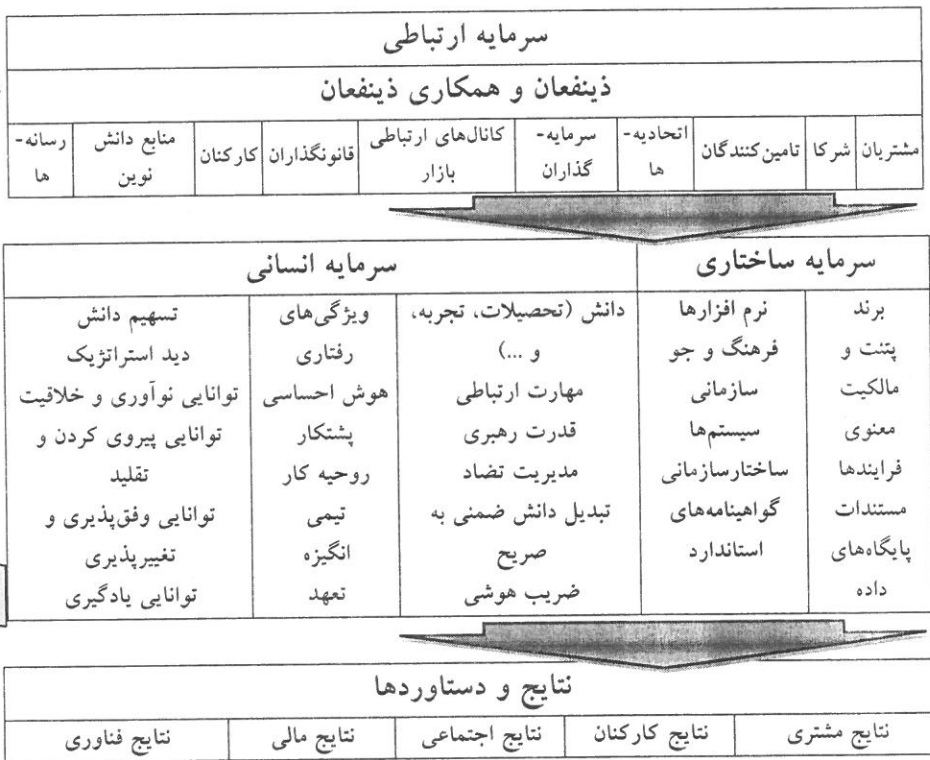 سرمایه ارتباطی
ذینفعان و همکاری ذینفعان
مشتریان
شرکا
تامین‌کنندگان
اتحادیه-
ها
سرمایه-
گذاران
کانال‌های ارتباطی
بازار
قانونگذاران
کارکنان
منابع دانش
نوین
رسانه-
ها
سرمایه ساختاری
برند
پتنت و
مالکیت
معنوی
فرایندها
مستندات
پایگاه‌های
داده
نرم افزارها
فرهنگ و جو
سازمانی
سیستم‌ها
ساختارسازمانی
گواهینامه‌های
استاندارد
سرمایه انسانی
دانش (تحصیلات، تجربه،
و ...)
مهارت ارتباطی
قدرت رهبری
مدیریت تضاد
تبدیل دانش ضمنی به
صریح
ضریب هوشی
ویژگی‌های
رفتاری
هوش احساسی
پشتکار
روحیه کار
تیمی
انگیزه
تعهد
تسهیم دانش
دید استراتژیک
توانایی نوآوری و خلاقیت
توانایی پیروی کردن و
تقلید
توانایی وفق‌پذیری و
تغییرپذیری
توانایی یادگیری
نتایج و دستاوردها
نتایج مشتری
نتایج کارکنان
نتایج اجتماعی
نتایج مالی
نتایج فناوری